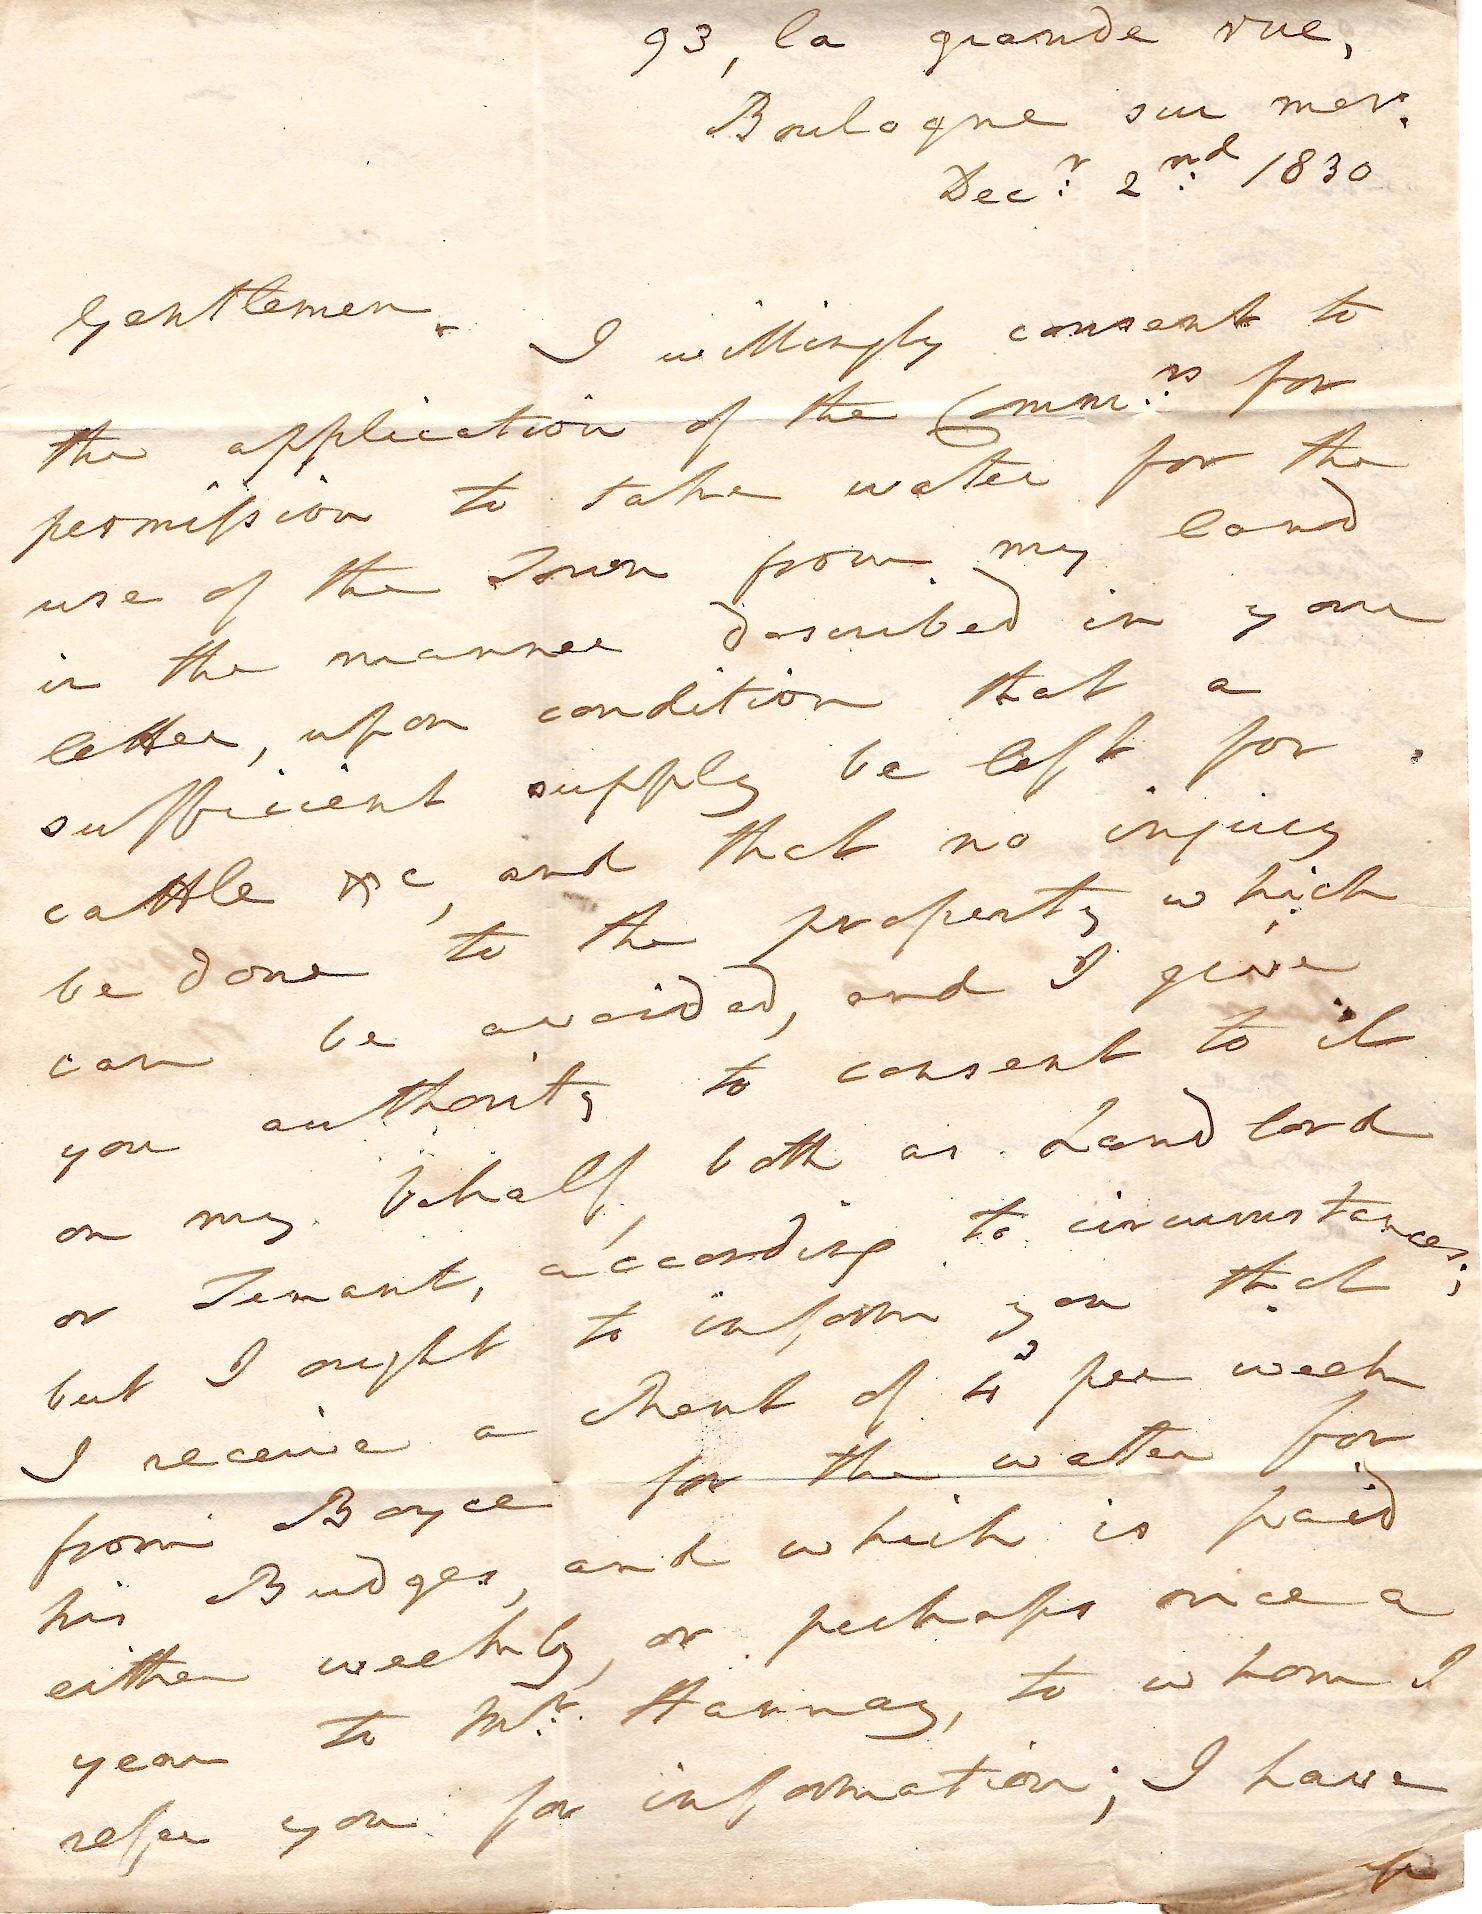 93, la grande rue,
Boulogne sur mer.
Decr. 2nd. 1830
Gentlemen.
I willingly consent to
the application of the Commrs. for
permission to take water for the
use of the Town from my land
in the manner described in your
letter, upon condition that a
sufficient supply be left for
cattle &c, and that no injury
be done to the property which
can be avoided, and I give
you authority to consent to it
on my behalf, both as Landlord
or Tenant, according to circumstances;
but I ought to inform you that
I receive a Rent of 4s per week
from Boyce for the water for
his Budges, and which is paid
either weekly, or perhaps once a
year to Mr. Hannay, to whom I
refer you for information; I have